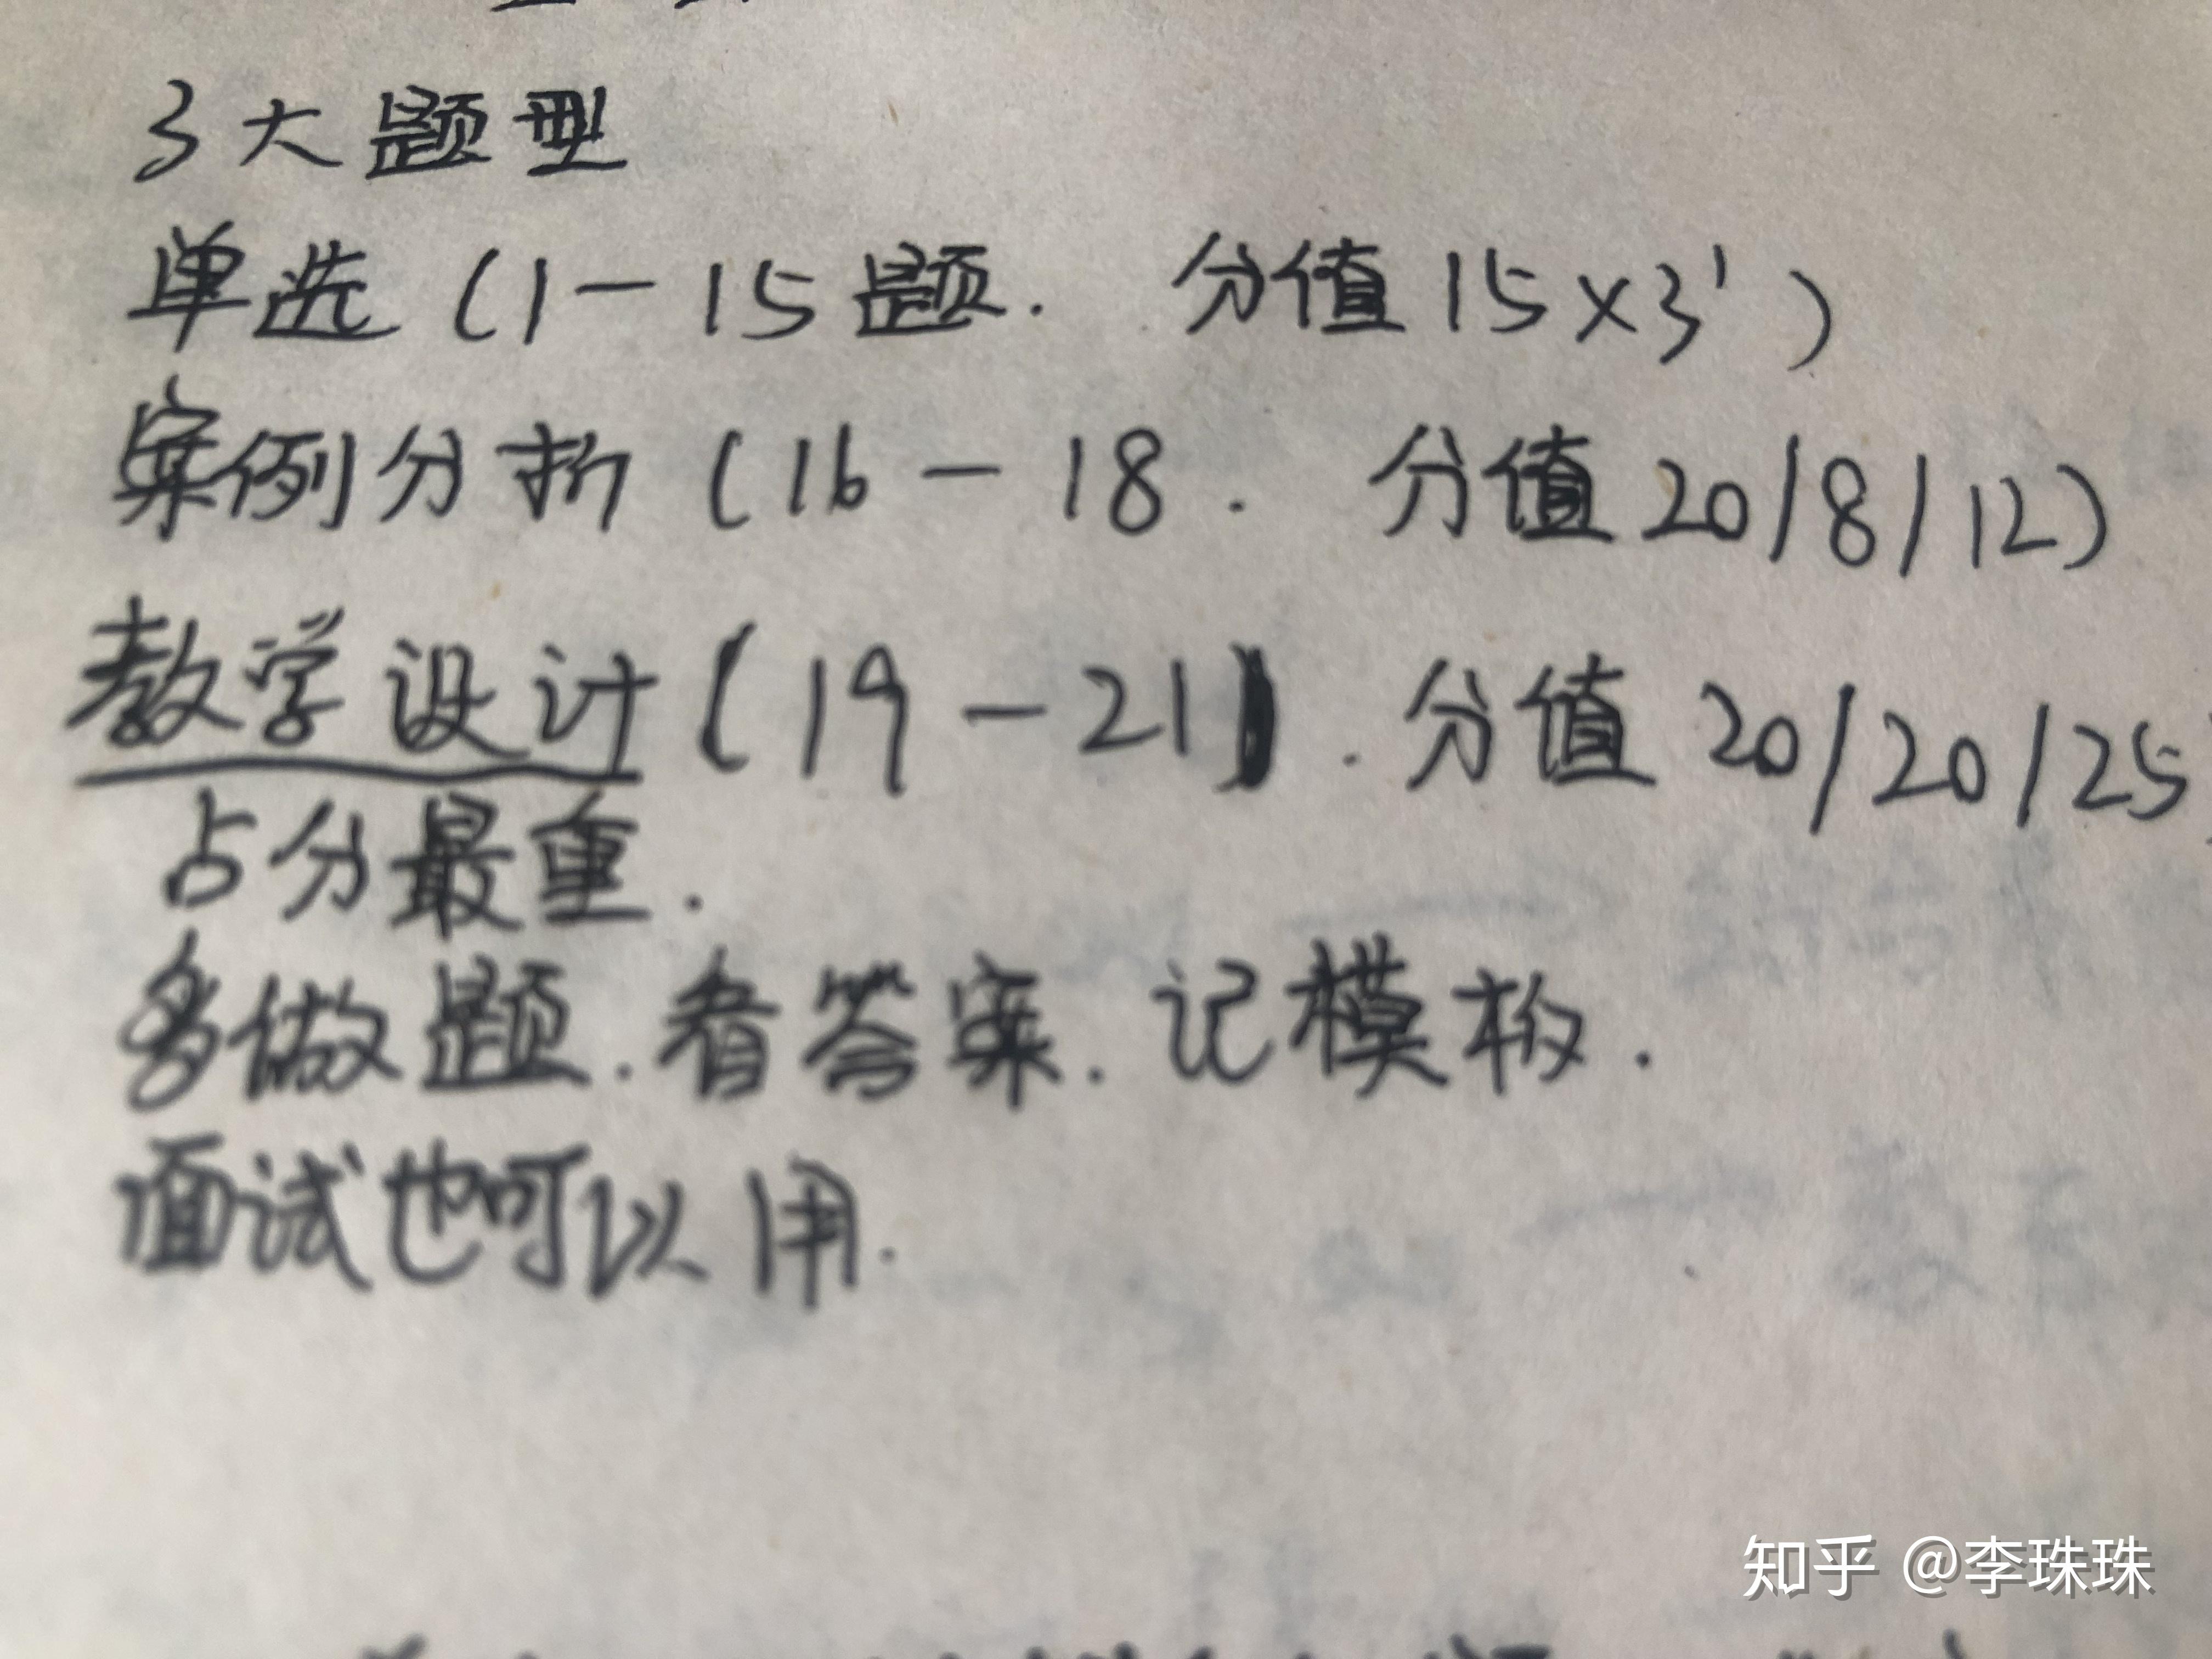 3大题型
单选(1-15题. 分值15×3')
案例分析(16-18. 分值20/8/12)
教学设计(19-21). 分值20/20/25
占分最重.
多做题.看答案.记模板.
面试也可以用.
知乎 @李珠珠